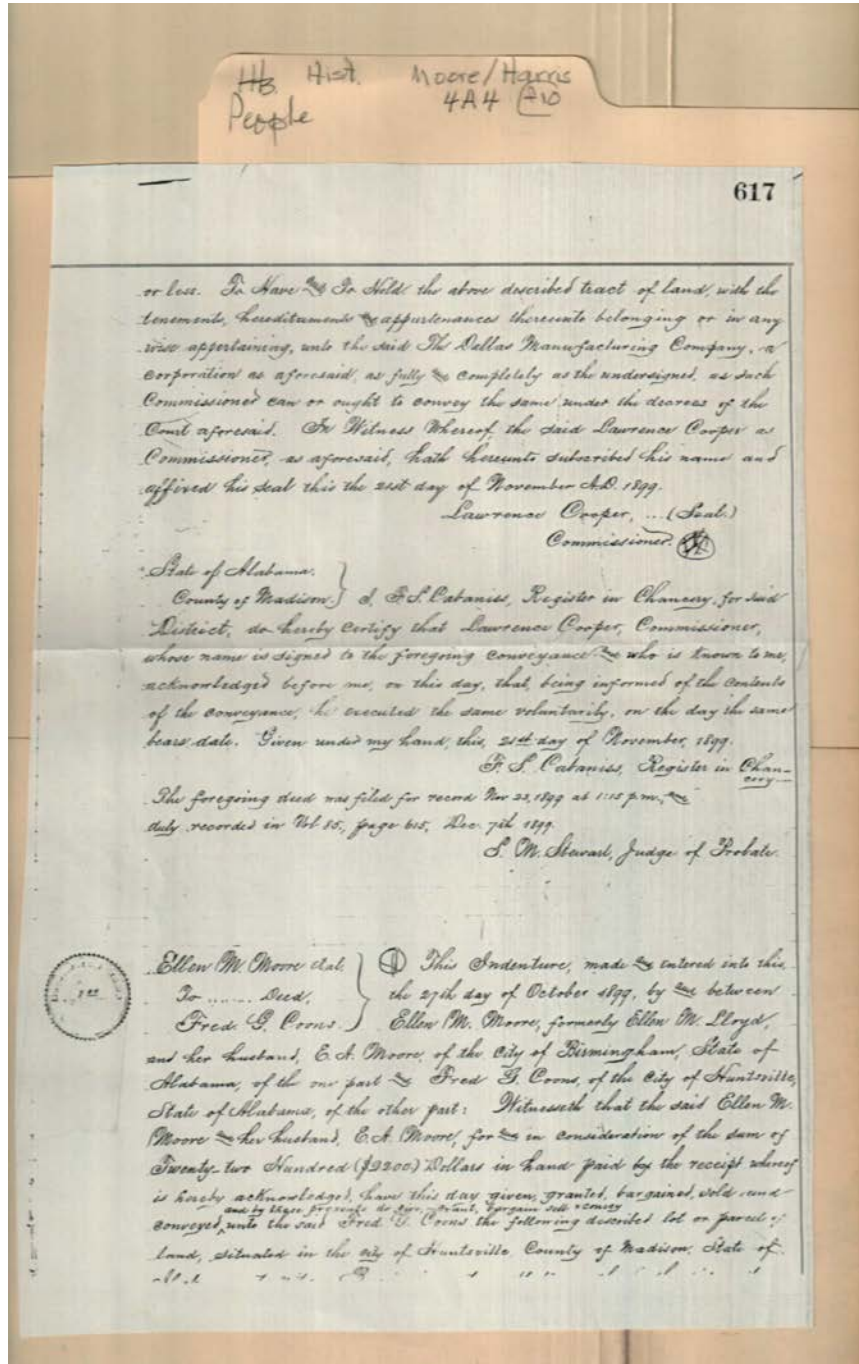 HB Hist. Moore/Harris
4A4
People
617
or less. To Have & To Hold the above described tract of land, with the
tenements, hereditaments & appurtenances thereunto belonging or in any
wise appertaining, unto the said The Dallas Manufacturing Company, a
corporation as aforesaid, as fully & completely as the undersigned, as such
Commissioner can or ought to convey the same under the decrees of the
Court aforesaid. In Witness Whereof, the said Lawrence Cooper as
Commissioner, as aforesaid, hath hereunto subscribed his name and
affixed his seal this the 21st day of November A.D. 1899.
Lawrence Cooper, ... (Seal.)
Commissioner.
State of Alabama.
County of Madison. } I, F. S. Cabaniss, Register in Chancery, for said
District, do hereby certify that Lawrence Cooper, Commissioner,
whose name is signed to the foregoing conveyance & who is known to me,
acknowledged before me, on this day, that, being informed of the contents
of the conveyance, he executed the same voluntarily, on the day the same
bears date. Given under my hand, this, 21st day of November, 1899.
F. S. Cabaniss, Register in Chan-
cery
The foregoing deed was filed for record Nov 23, 1899 at 1:15 p.m., &
duly recorded in Vol 85, page 615, Dec. 7th 1899.
S. M. Stewart, Judge of Probate.
Ellen M. Moore etal. } This Indenture, made & entered into this
To ....... Deed, the 27th day of October 1899, by & between
Fred. G. Coons. } Ellen M. Moore, formerly Ellen M. Lloyd,
and her husband, E. A. Moore, of the city of Birmingham, State of
Alabama, of the one part & Fred G. Coons, of the City of Huntsville,
State of Alabama, of the other part: Witnesseth that the said Ellen M.
Moore & her husband, E. A. Moore, for & in consideration of the sum of
Twenty-two Hundred ($2200) Dollars in hand paid by the receipt whereof
is hereby acknowledged, have this day given, granted, bargained, sold and
and by these presents do give, grant, bargain sell & convey
conveyed, unto the said Fred G. Coons the following described lot or parcel of
land, situated in the city of Huntsville, County of Madison, State of